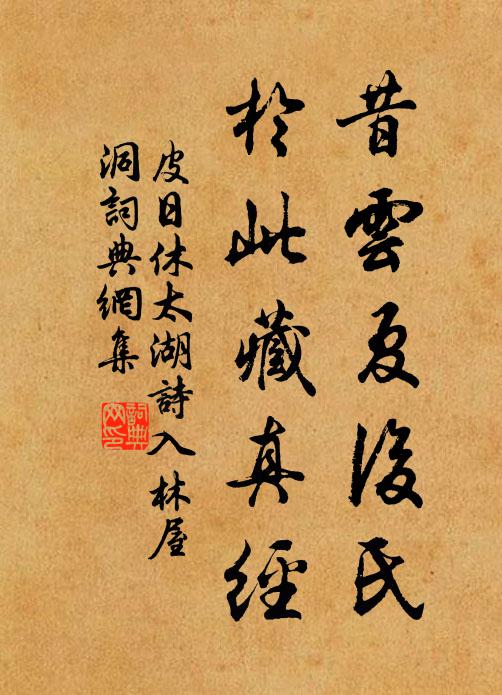 昔雲夏後氏
於此藏真經
皮日休太湖詩入林屋
洞詞典網集
詞典
网印